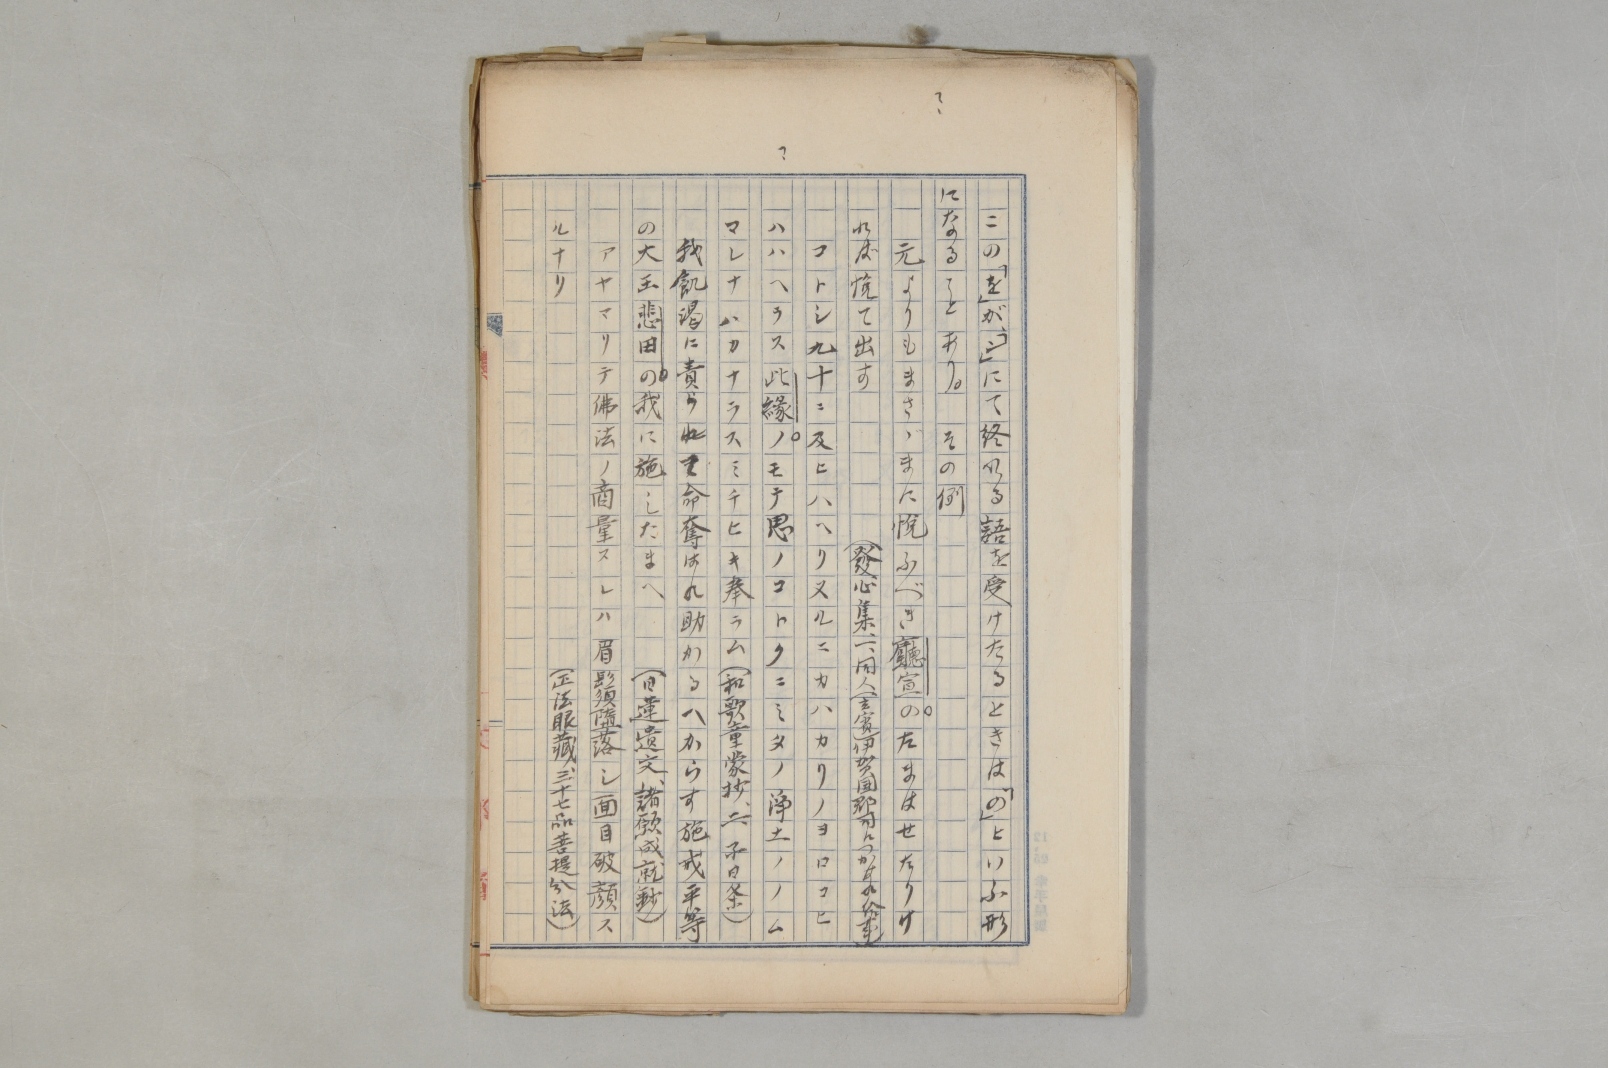 この「を」が「ン」にて終れる語を受けたるときは「の」といふ形
になることあり。その例
元よりもまさゞまに悦ふべき廳宣のたまはせたりけ
れば悦て出す
（發心集、二、同人（玄賓）伊賀国郡司につかはれ給事）
コトシ九十ニ及ヒハヘリヌルニカハカリノヨロコヒ
ハハヘラス此縁ノモテ思ノコトクニミタノ浄土ノノム
マレナハカナラスミチヒキ奉ラム（和歌童蒙抄、二、子日条）
我飢渇に責られて命奪はれ助かるへからす施戒平等
の大王悲田の我に施したまへ（日蓮遺文、諸願成就鈔）
アヤマリテ佛法ノ商量スレハ眉鬚須墮落シ面目破顔ス
ルナリ（正法眼藏、三十七品菩提分法）